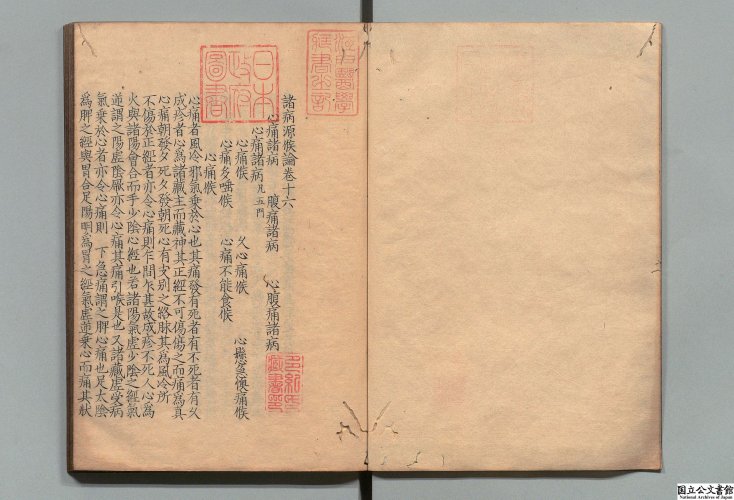 諸病源候論卷十六
心痛諸病 腹痛諸病 心腹痛諸病
心痛諸病凡五門
心痛候 久心痛候 心懸急懊痛候
心痛多唾候 心痛不能食候
心痛候
心痛者風冷邪氣乗於心也其痛發有死者有不死者有久
成疹者心為諸藏主而藏神其正經不可傷傷之而痛為真
心痛朝發夕死夕發朝死心有支别之絡脉其為風冷所
不傷於正經者亦令心痛則乍間乍甚故成疹不死人心為
火與諸陽會合而手少陰心經也若諸陽氣虚少陰之經氣
逆謂之陽虚陰厥亦令心痛其痛引喉是也又諸藏虚受病
氣乗於心者亦令心痛則 下急痛謂之脾心痛也足太陰
為脾之經與胃合足陽明為胃之經氣虚逆乗心而痛其状
日本
政府
圖書
江戸醫學
藏書之記
国立公文書館
National Archives of Japan